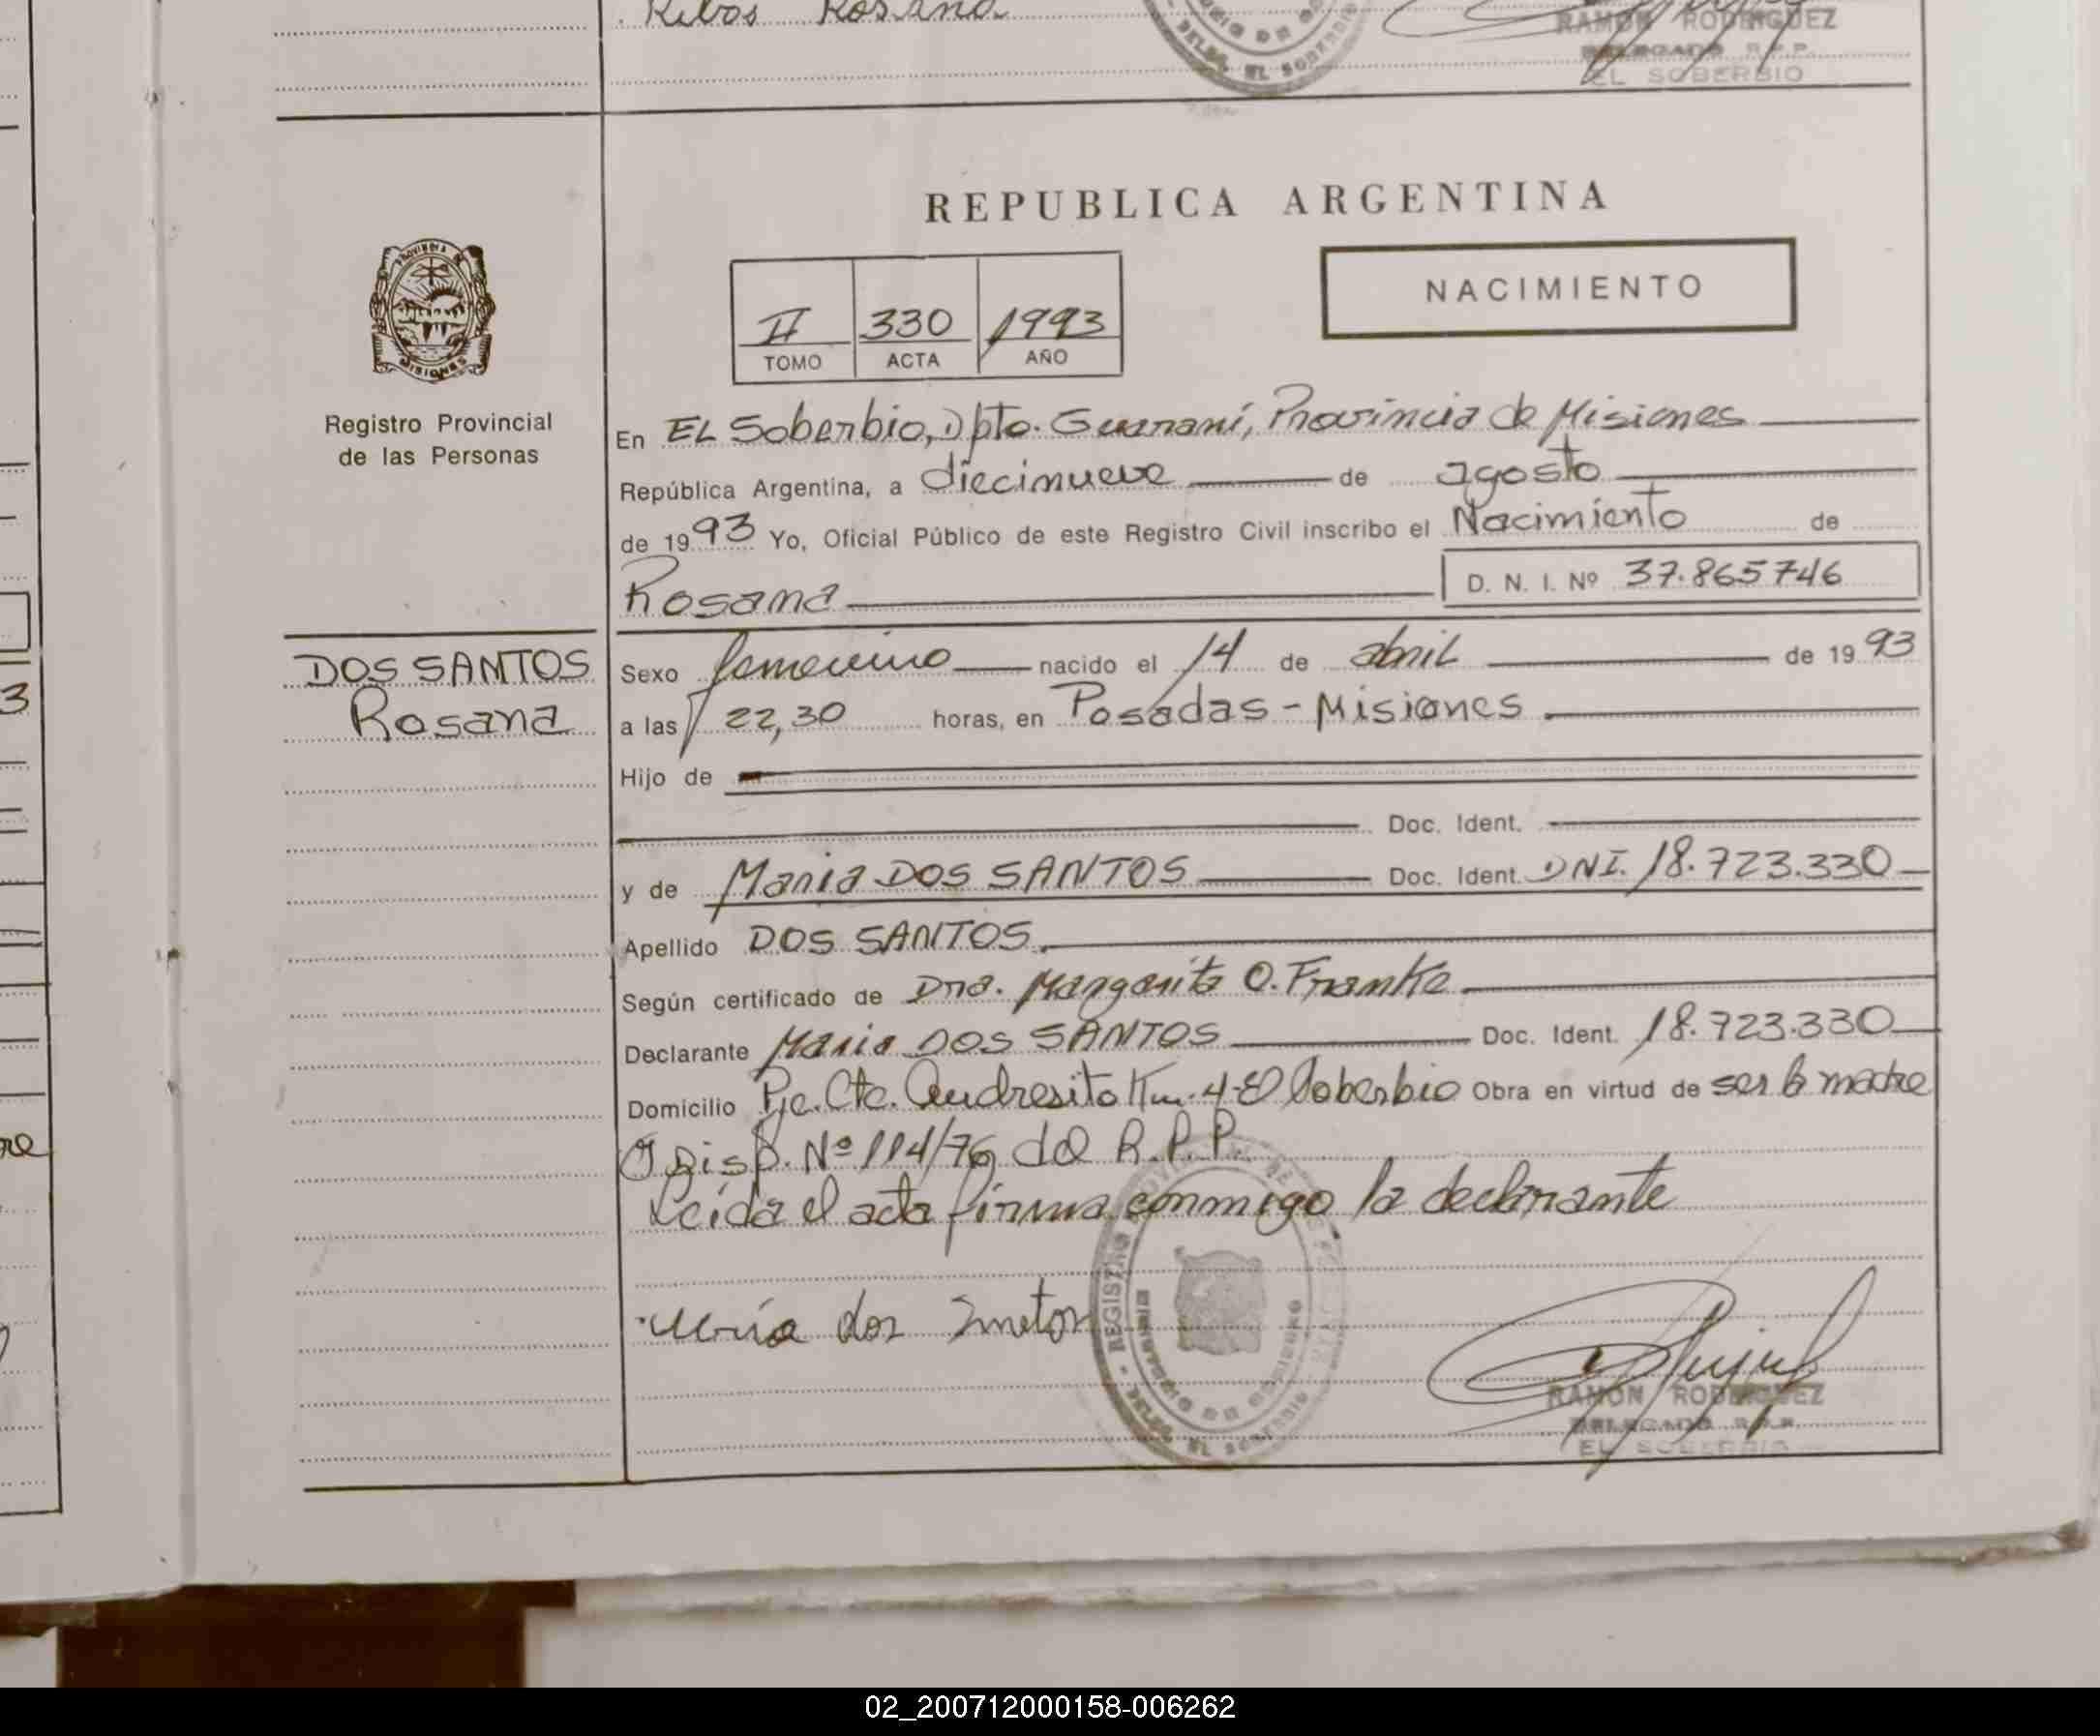 Ribos Rosana
RAMON RODRIGUEZ
DELEGADO R.P.P.
EL SOBERBIO
REPUBLICA ARGENTINA
NACIMIENTO
II 330 1993
TOMO ACTA AÑO
Registro Provincial
de las Personas
En EL Soberbio, Dpto. Guaraní, Provincia de Misiones
República Argentina, a diecinueve de agosto
de 1993 Yo, Oficial Público de este Registro Civil inscribo el Nacimiento de
Rosana D. N. I. Nº 37.865746
DOS SANTOS
Rosana
Sexo femenino nacido el 14 de abril de 1993
a las 22,30 horas, en Posadas - Misiones
Hijo de
Doc. Ident.
y de Maria DOS SANTOS Doc. Ident. DNI. 18.723.330
Apellido DOS SANTOS.
Según certificado de Dra. Margarita O. Franke
Declarante Maria DOS SANTOS Doc. Ident. 18.723.330
Domicilio Pje. Cte. Andresito Km. 4-El Soberbio Obra en virtud de ser la madre
Disp. Nº 114/76 del R.P.P.
Leída el acta firma conmigo la declarante
María dos Santos
RAMON RODRIGUEZ
DELEGADO R.P.P.
EL SOBERBIO
02_200712000158-006262